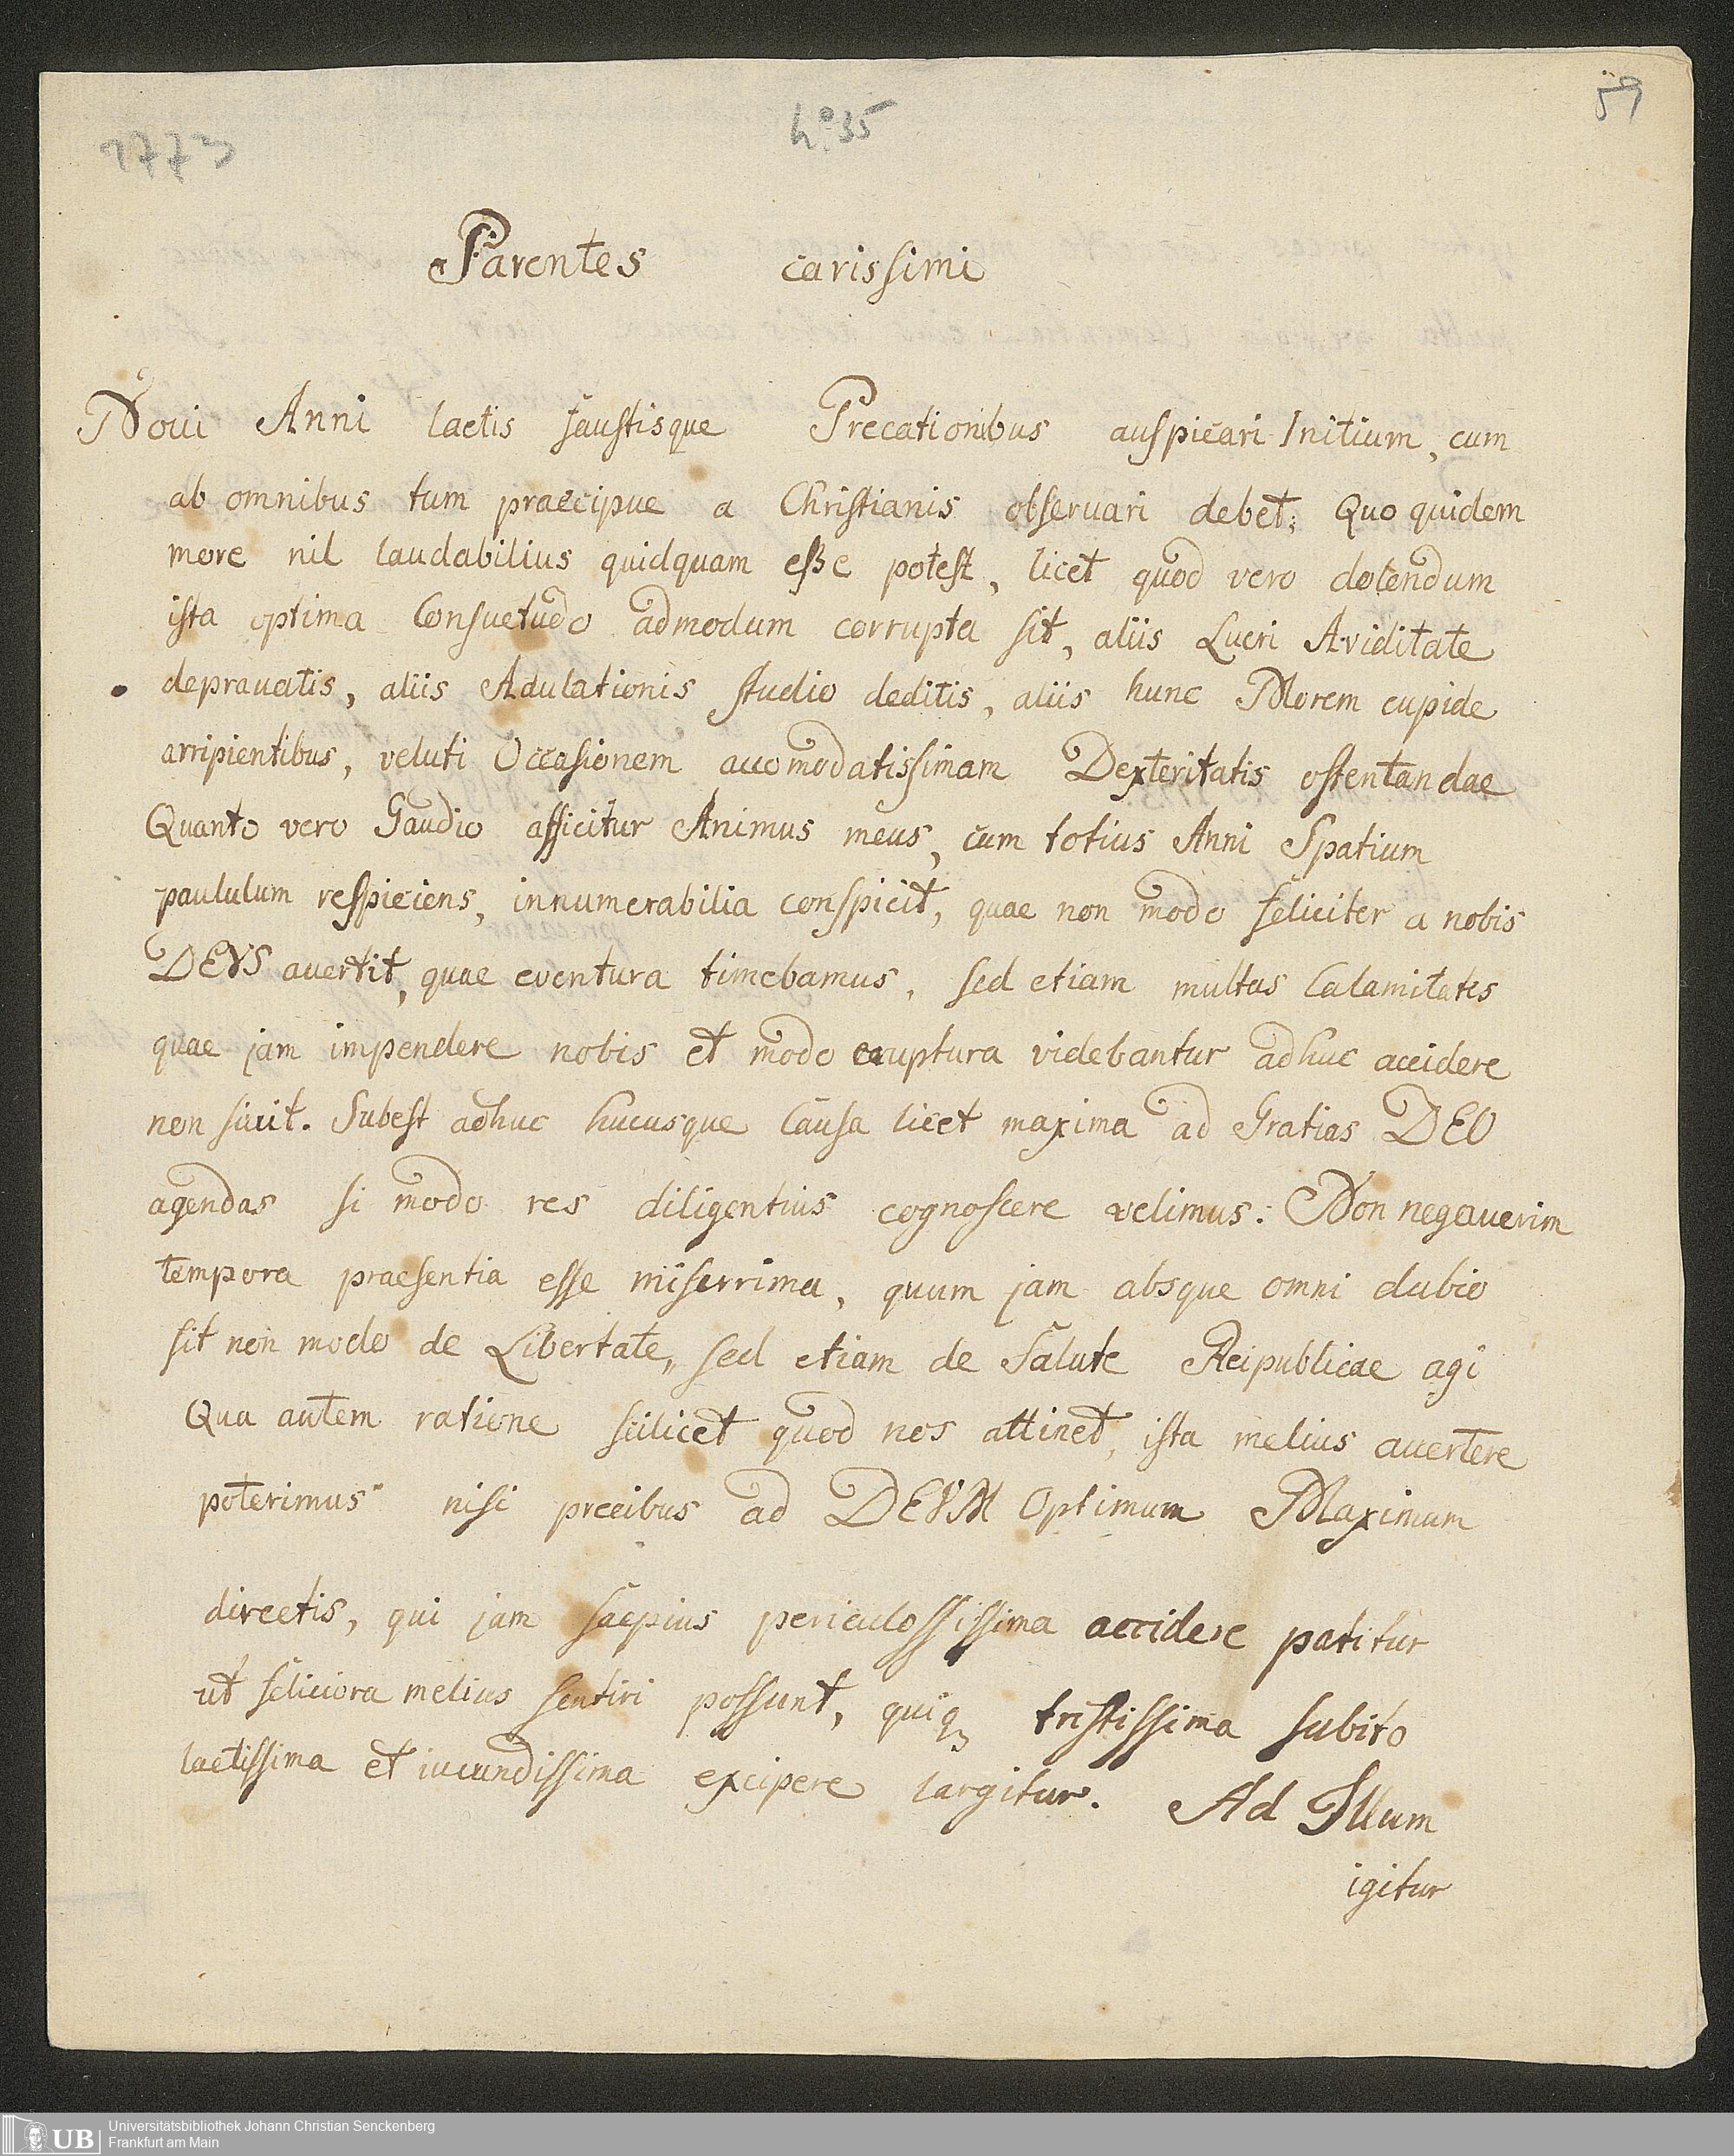 1773
no 35
59
Parentes carissimi
Noui Anni laetis faustisque Precationibus auspicari Initium, cum
ab omnibus tum praecipue a Christianis obseruari debet; Quo quidem
more nil laudabilius quidquam esse potest, licet quod vero dolendum
ista optima Consuetudo admodum corrupta sit, aliis Lucri Aviditate
deprauatis, aliis Adulationis studio deditis, aliis hunc Morem cupide
arripientibus, veluti Occasionem accomodatissimam Dexteritatis ostentandae
Quanto vero Gaudio afficitur Animus meus, cum totius Anni Spatium
paululum respiciens, innumerabilia conspicit, quae non modo feliciter a nobis
DEVS auertit, quae eventura timebamus, sed etiam multas Calamitates
quae jam impendere nobis et modo eruptura videbantur adhuc accidere
non siuit. Subest adhuc hucusque Causa licet maxima ad Gratias DEO
agendas si modo res diligentius cognoscere velimus: Non negauerim
tempora praesentia esse miserrima, quum jam absque omni dubio
sit non modo de Libertate, sed etiam de Salute Reipublicae agi
Qua autem ratione scilicet quod nos attinet, ista melius auertere
poterimus nisi precibus ad DEVM Optimum Maximum
directis, qui jam saepius periculossissima accidere patitur
ut feliciora melius sentiri possunt, quiq tristissima subito
laetissima et iucundissima excipere largitur. Ad Illum
igitur
UB Universitätsbibliothek Johann Christian Senckenberg
Frankfurt am Main